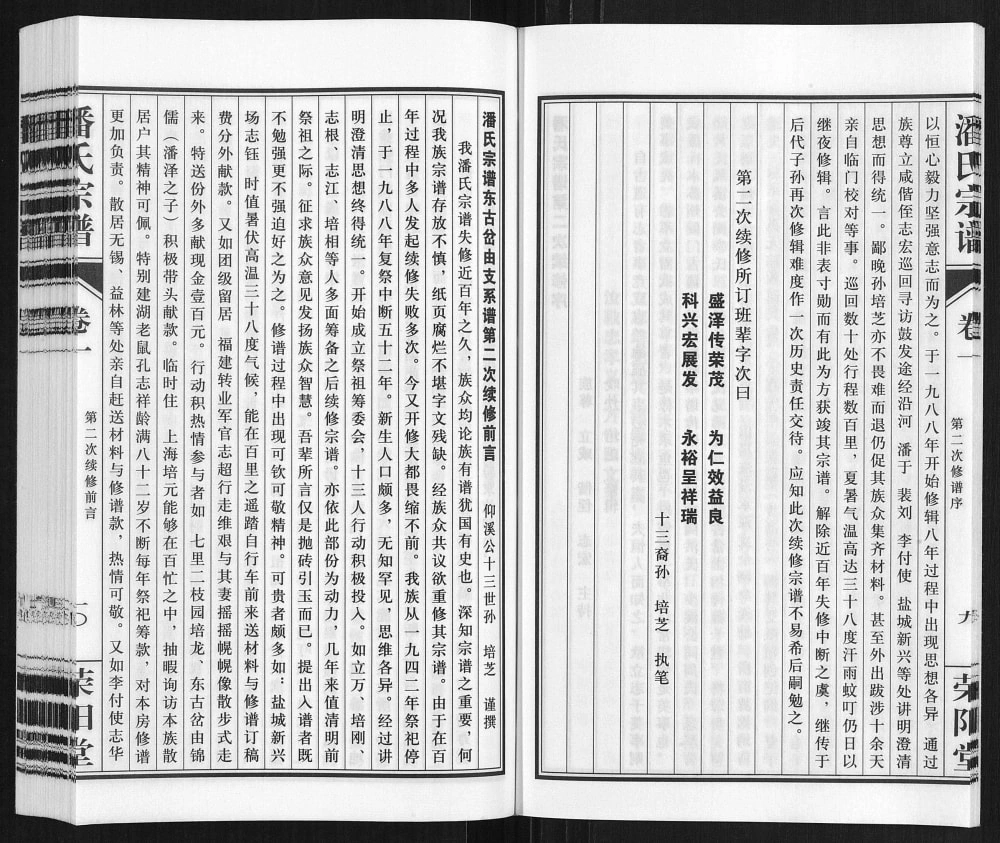 潘氏宗谱
卷一
第二次修谱序
九
荣阳堂
以恒心毅力坚强意志而为之。于一九八八年开始修辑八年过程中出现思想各异 通过
族尊立咸偕侄志宏巡回寻访鼓发途经沿河 潘于 裴刘 李付使 盐城新兴等处讲明澄清
思想而得统一。鄙晚孙培芝亦不畏难而退仍促其族众集齐材料。甚至外出跋涉十余天
亲自临门校对等事。巡回数十处行程数百里，夏暑气温高达三十八度汗雨蚊叮仍日以
继夜修辑。言此非表寸勋而有此为方获竣其宗谱。解除近百年失修中断之虞，继传于
后代子孙再次修辑难度作一次历史责任交待。应知此次续修宗谱不易希后嗣勉之。
第二次续修所订班辈字次曰
盛泽传荣茂 为仁效益良
科兴宏展发 永裕呈祥瑞
十三裔孙 培芝 执笔
潘氏宗谱东古岔由支系谱第二次续修前言 仰溪公十三世孙 培芝 谨撰
我潘氏宗谱失修近百年之久，族众均论族有谱犹国有史也。深知宗谱之重要，何
况我族宗谱存放不慎，纸页腐烂不堪字文残缺。经族众共议欲重修其宗谱。由于在百
年过程中多人发起续修失败多次。今又开修大都畏缩不前。我族从一九四二年祭祀停
止，于一九八八年复祭中断五十二年。新生人口颇多，无知罕见，思维各异。经过讲
明澄清思想终得统一。开始成立祭祖筹委会，十三人行动积极投入。如立万、培刚、
志根、志江、培相等人多面筹备之后续修宗谱。亦依此部份为动力，几年来值清明前
祭祖之际。征求族众意见发扬族众智慧。吾辈所言仅是抛砖引玉而已。提出入谱者既
不勉强更不强迫好之为之。修谱过程中出现可钦可敬精神。可贵者颇多如：盐城新兴
场志钰 时值暑伏高温三十八度气候，能在百里之遥踏自行车前来送材料与修谱订稿
费分外献款。又如团级留居 福建转业军官志超行走维艰与其妻摇摇幌幌像散步式走
来。特送份外多献现金壹百元。行动积热情参与者如 七里二枝园培龙、东古岔由锦
儒（潘泽之子）积极带头献款。临时住 上海培元能够在百忙之中，抽暇询访本族散
居户其精神可佩。特别建湖老鼠孔志祥龄满八十二岁不断每年祭祀筹款，对本房修谱
更加负责。散居无锡、益林等处亲自赶送材料与修谱款，热情可敬。又如李付使志华
潘氏宗谱
卷一
第二次续修前言
一〇
荣阳堂